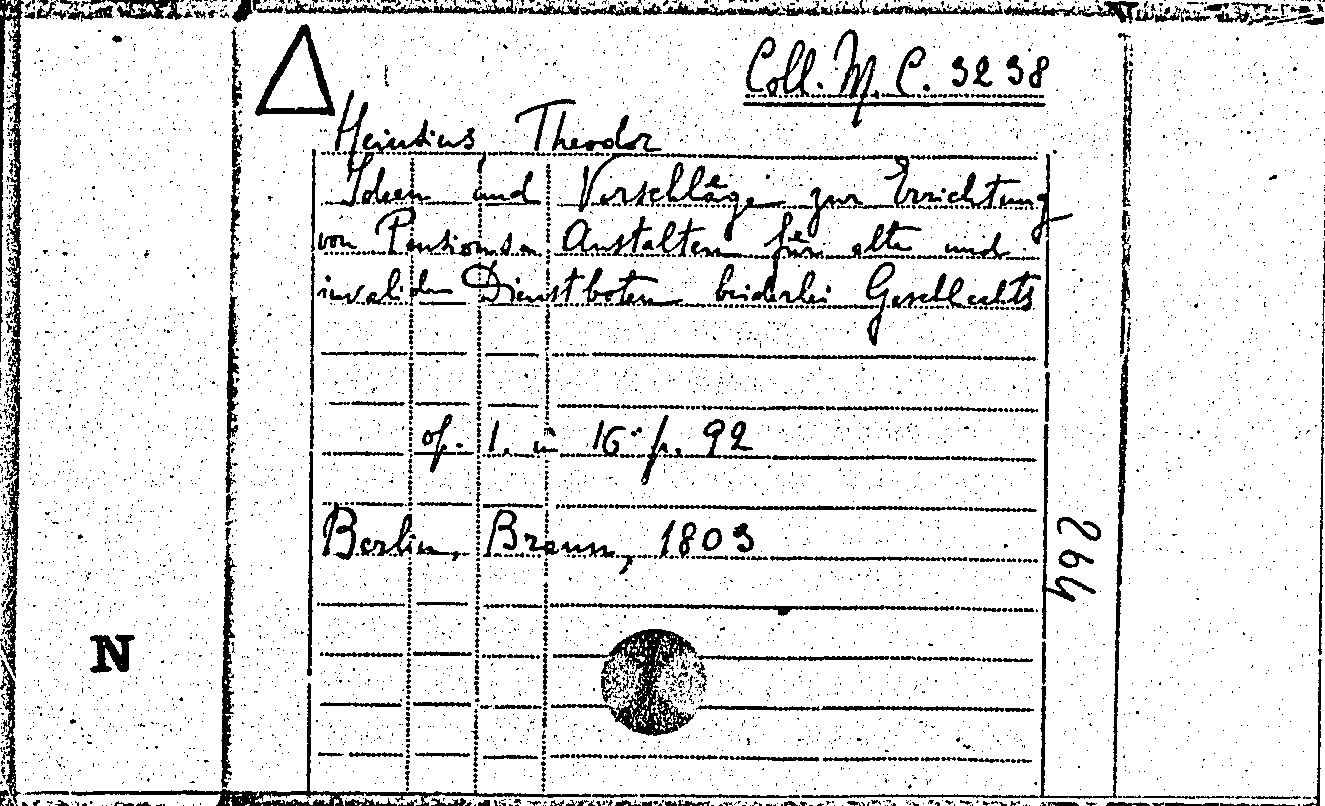 Coll. M. C. 3238
Heinsius Theodor
Ideen und Vorschläge zur Errichtung
von Pensionsen Anstalten für alte und
invaliden Dienstboten beiderlei Geschlechts
of. 1. in 16° p. 92
Berlin, Braun, 1803
264
N